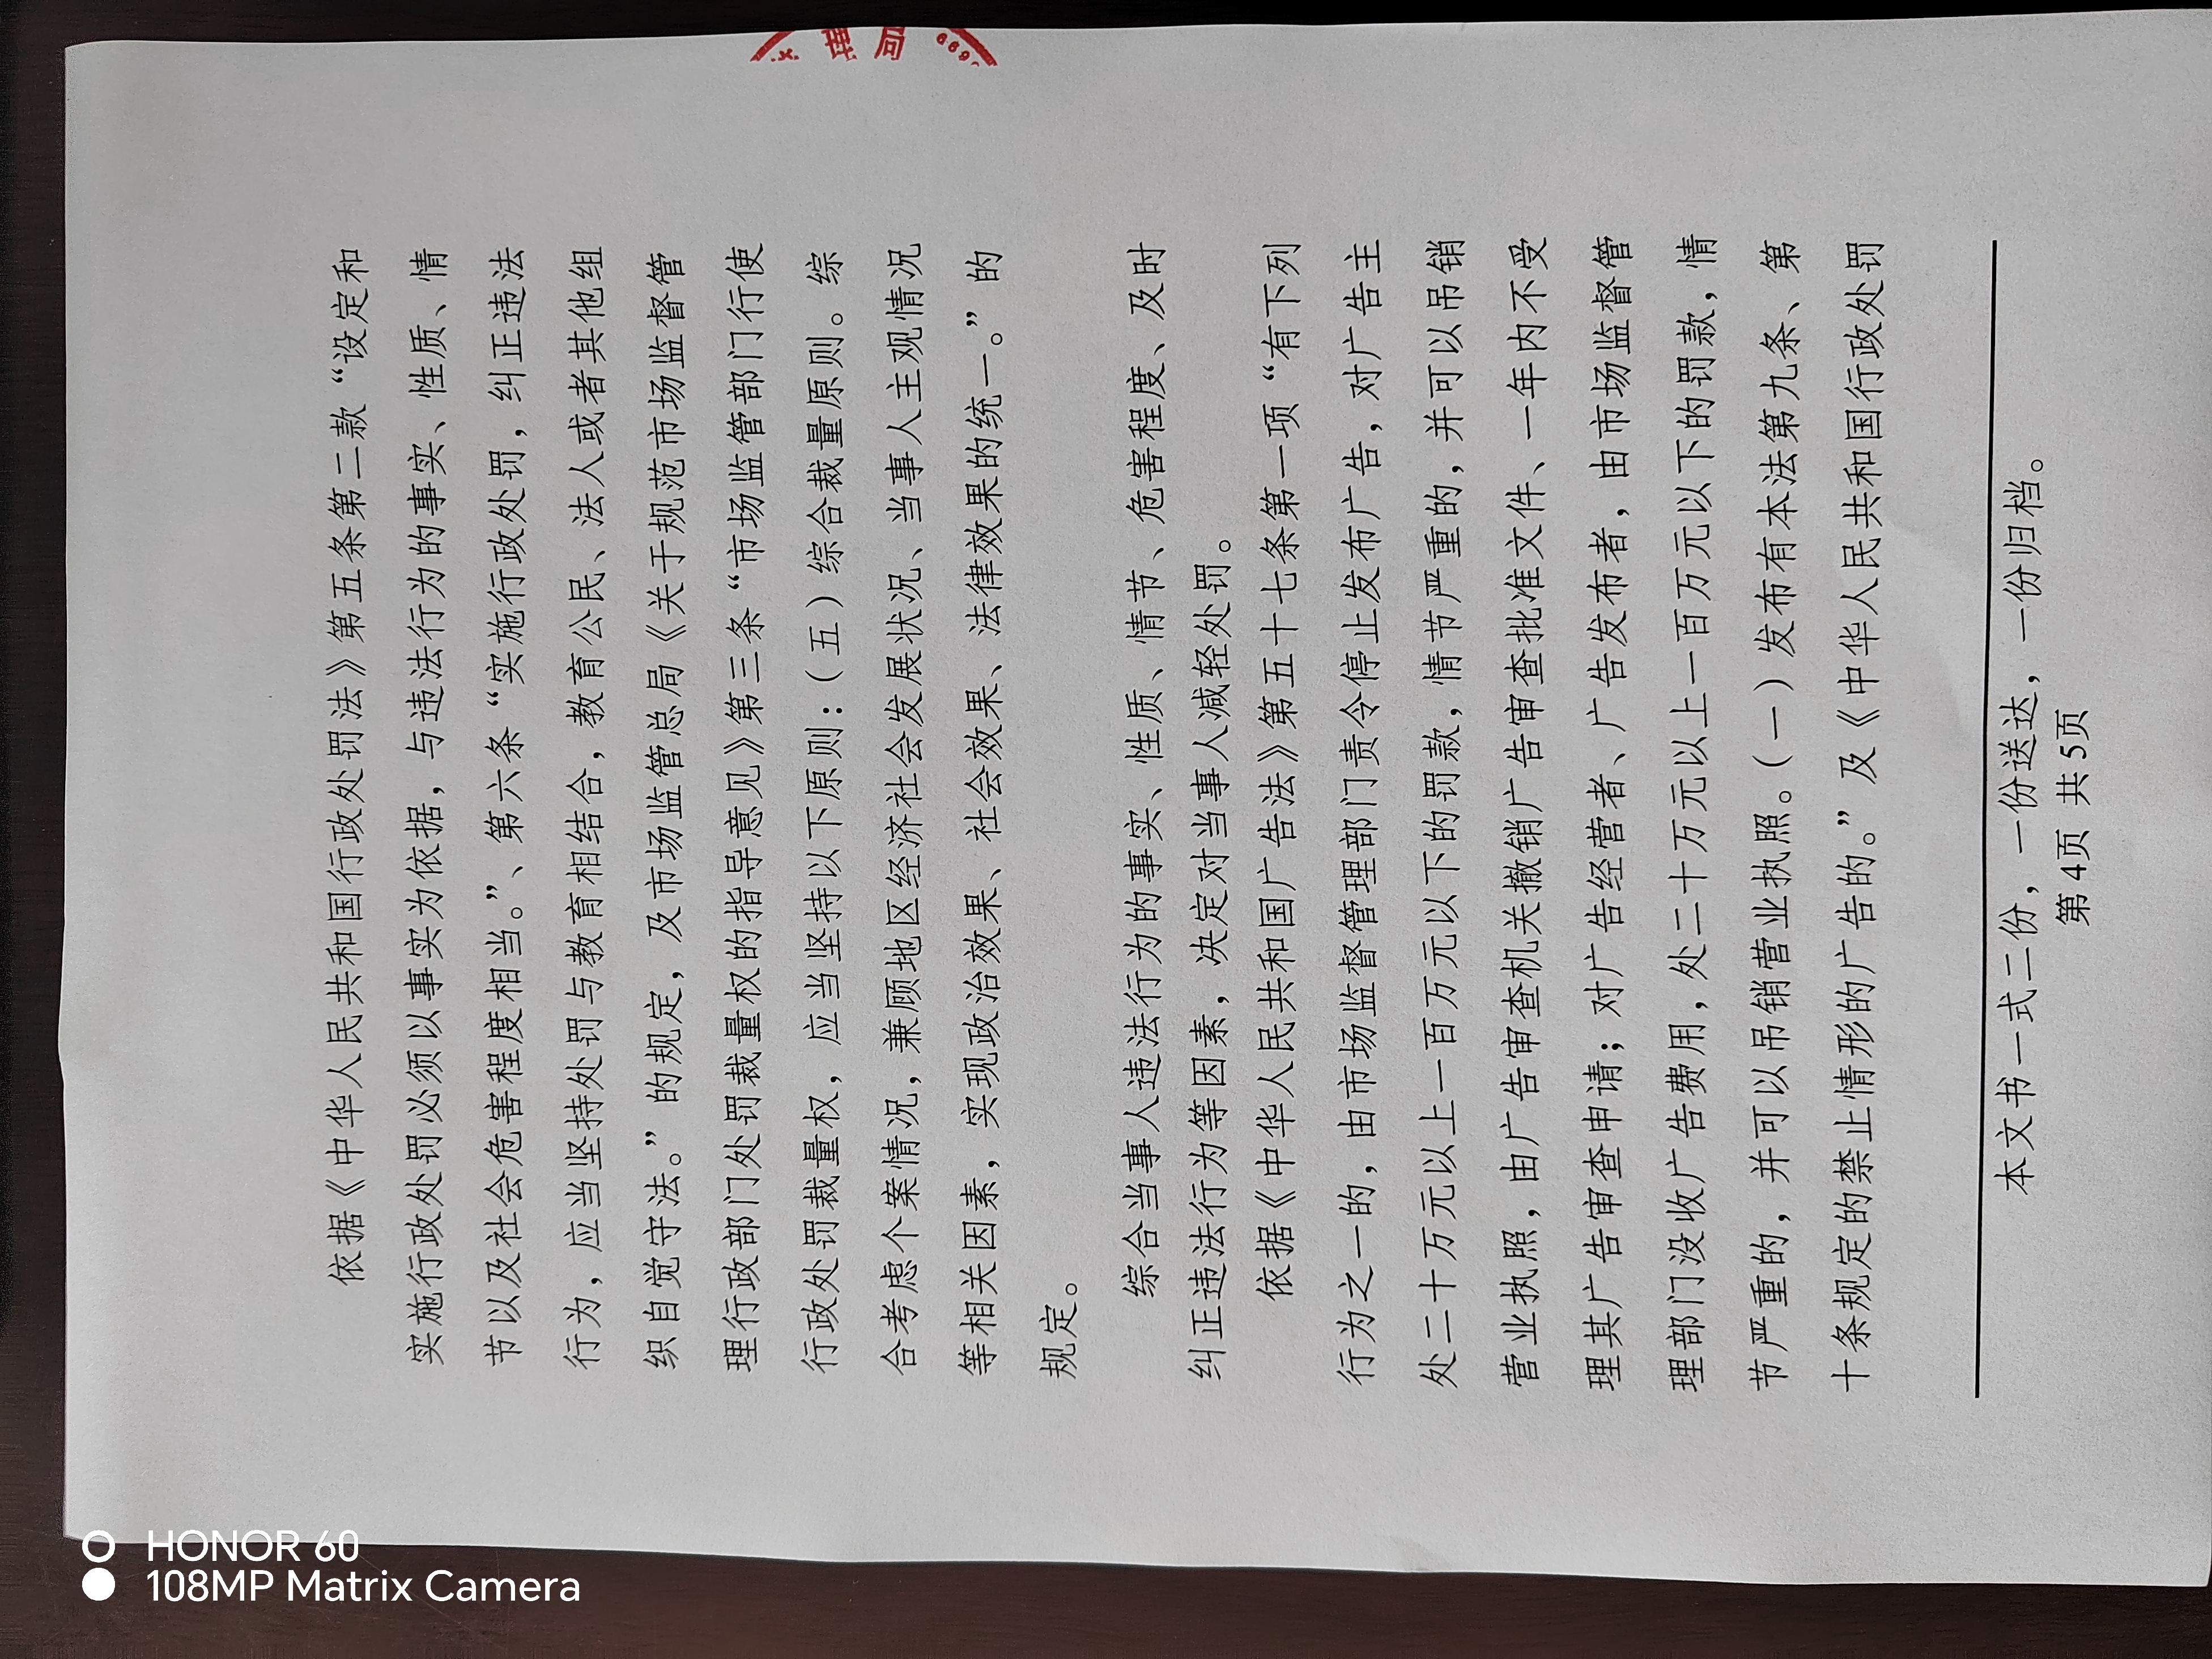 依据《中华人民共和国行政处罚法》第五条第二款“设定和
实施行政处罚必须以事实为依据，与违法行为的事实、性质、情
节以及社会危害程度相当。”、第六条“实施行政处罚，纠正违法
行为，应当坚持处罚与教育相结合，教育公民、法人或者其他组
织自觉守法。”的规定，及市场监管总局《关于规范市场监督管
理行政部门处罚裁量权的指导意见》第三条“市场监管部门行使
行政处罚裁量权，应当坚持以下原则：（五）综合裁量原则。综
合考虑个案情况，兼顾地区经济社会发展状况、当事人主观情况
等相关因素，实现政治效果、社会效果、法律效果的统一。”的
规定。
综合当事人违法行为的事实、性质、情节、危害程度、及时
纠正违法行为等因素，决定对当事人减轻处罚。
依据《中华人民共和国广告法》第五十七条第一项“有下列
行为之一的，由市场监督管理部门责令停止发布广告，对广告主
处二十万元以上一百万元以下的罚款，情节严重的，并可以吊销
营业执照，由广告审查机关撤销广告审查批准文件、一年内不受
理其广告审查申请；对广告经营者、广告发布者，由市场监督管
理部门没收广告费用，处二十万元以上一百万元以下的罚款，情
节严重的，并可以吊销营业执照。（一）发布有本法第九条、第
十条规定的禁止情形的广告的。”及《中华人民共和国行政处罚
本文书一式二份，一份送达，一份归档。
第4页 共5页
HONOR 60
108MP Matrix Camera